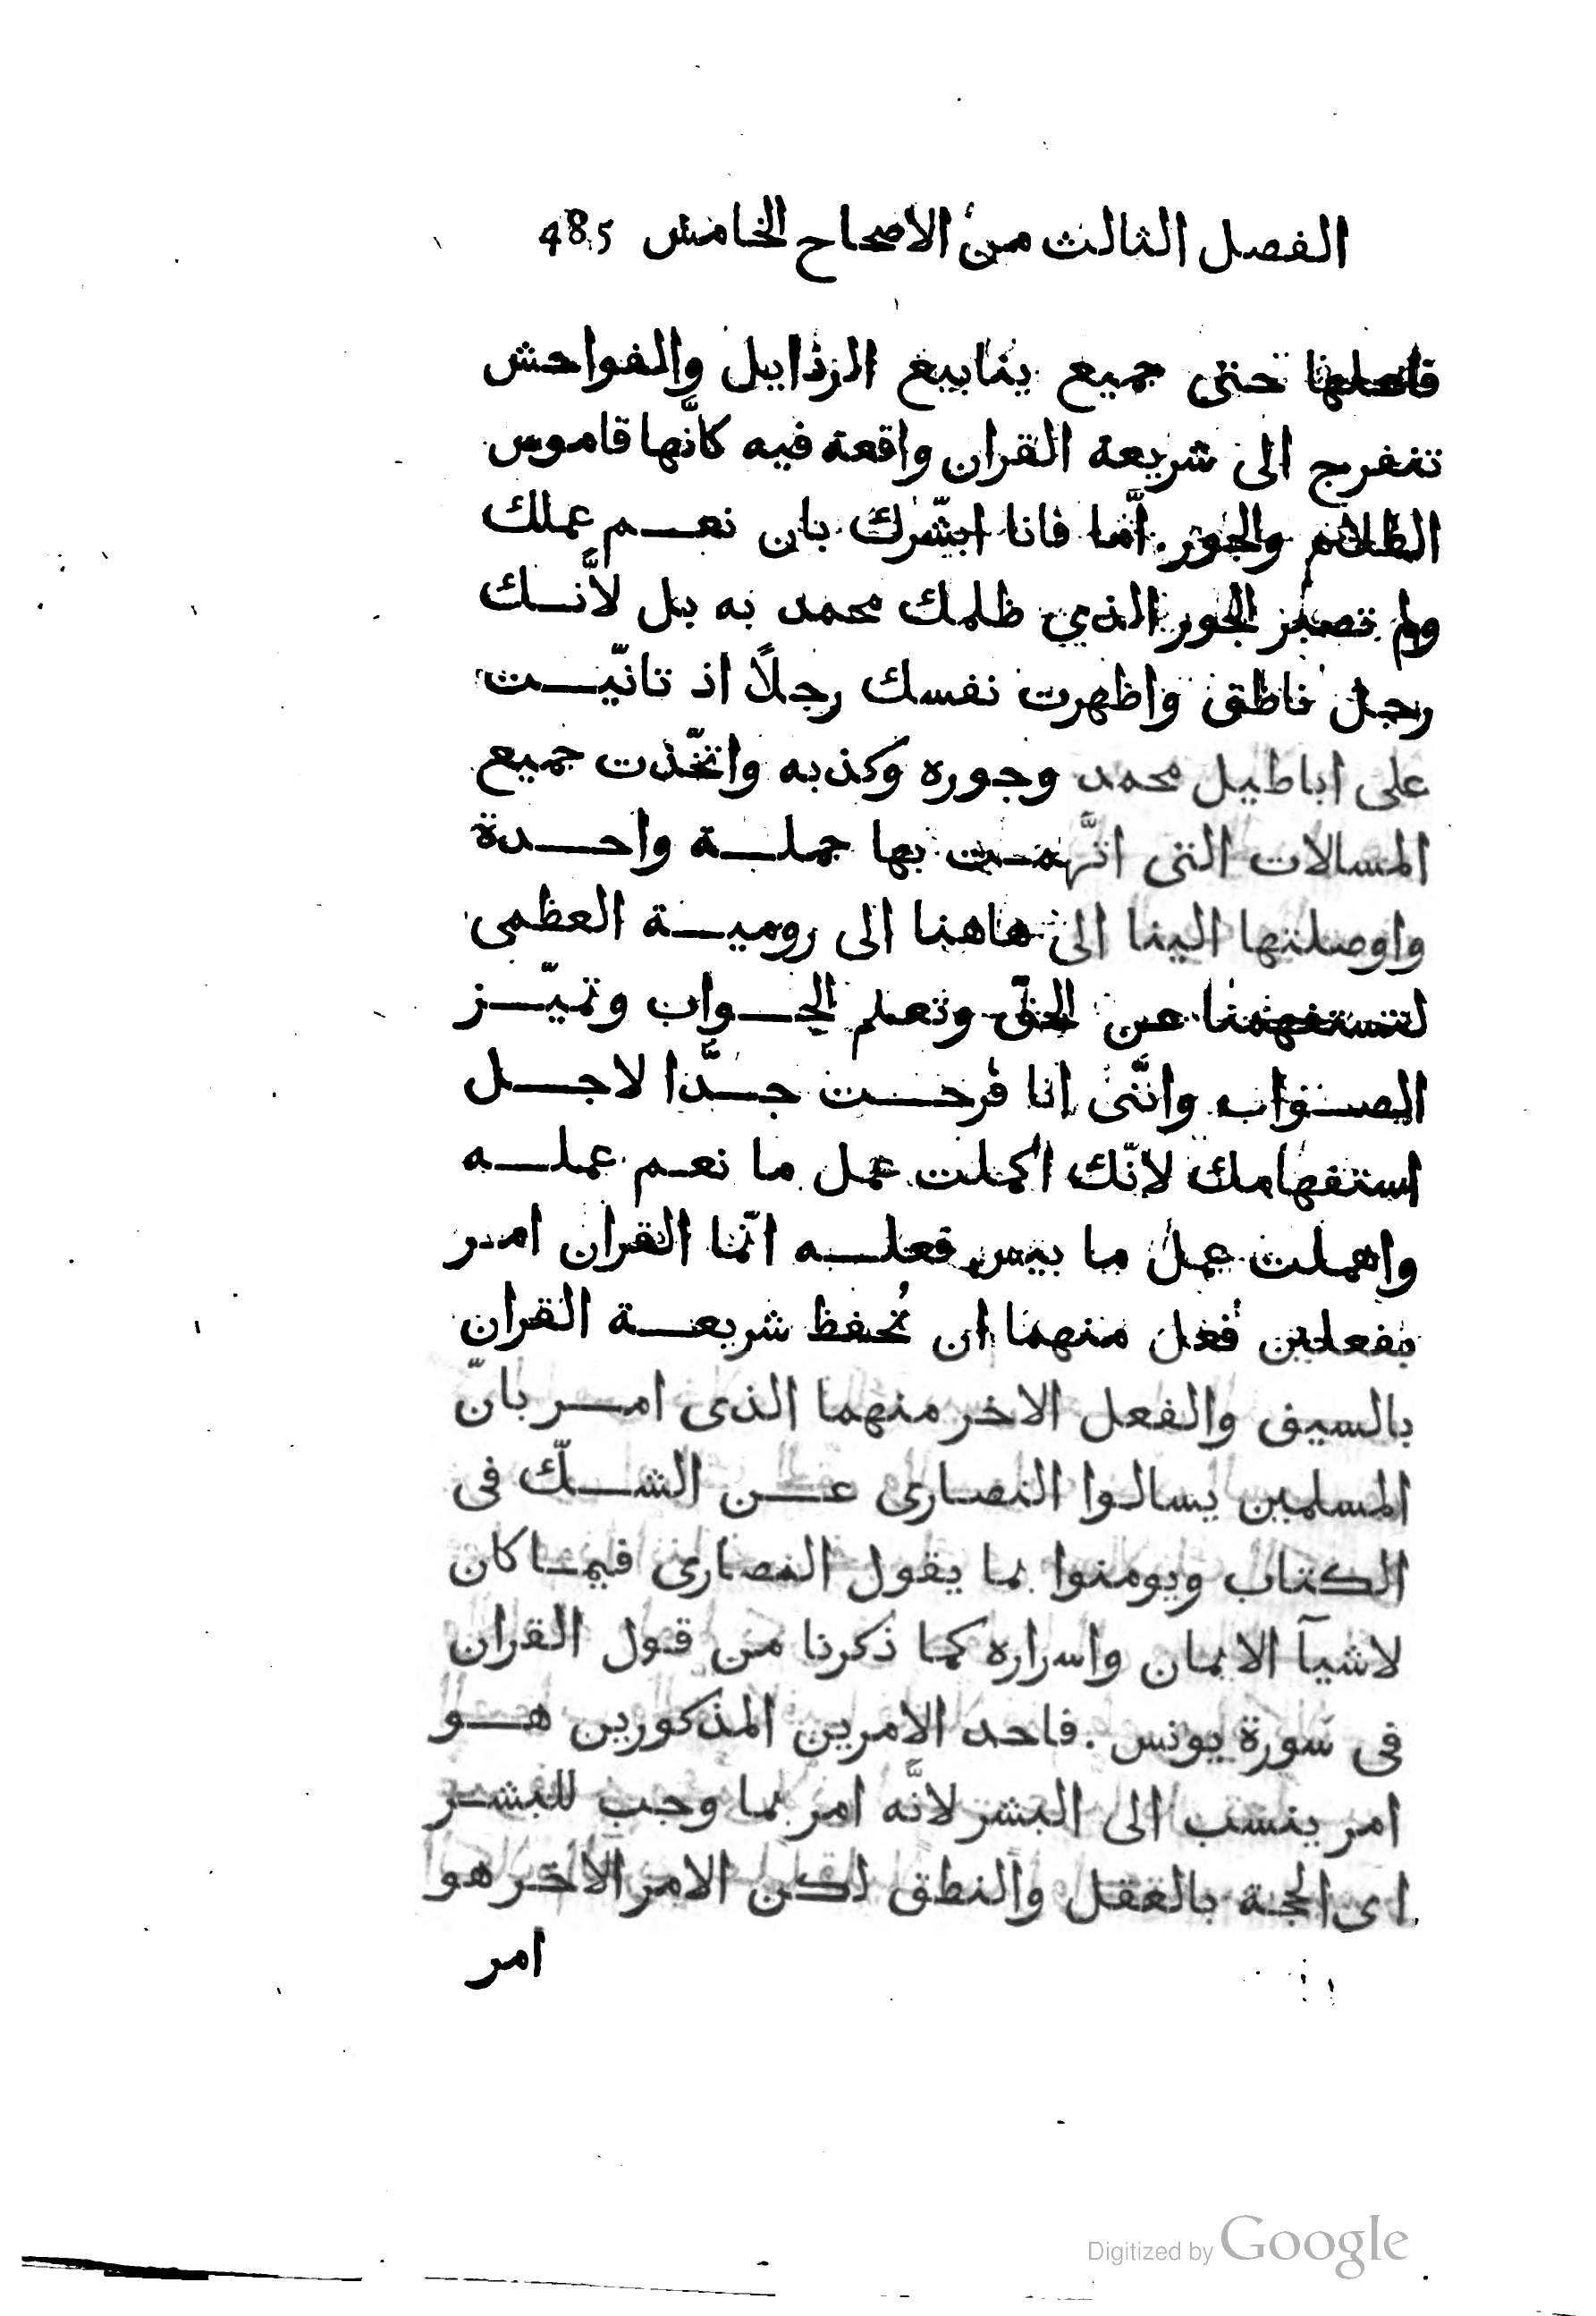 الفصل الثالث من الاصحاح الخامس 485
فاصلها حتى جميع ينابيع الرذايل والفواحش
تنفرج الى شريعة القران واقعة فيه كانّها قاموس
الظلام والجور. امّا فانا ابشّرك بان نعم عملك
ولم تصبر الجور الذي ظلمك محمد به بل لانّك
رجل ناطق واظهرت نفسك رجلاً اذ تانّيت
على اباطيل محمد وجوره وكذبه واتّخذت جميع
المسالات التى اتّهمت بها جملة واحدة
واوصلتها الينا الى هاهنا الى رومية العظمى
لتستفهمنا عن الحقّ وتعلم الجواب وتميّز
الصواب وانّنى انا فرحت جدّا لاجل
استفهامك لانّك اكملت عمل ما نعم عمله
واهملت عمل ما بيس فعله انّما القران امر
بفعلين فعل منهما ان تُحفظ شريعة القران
بالسيف والفعل الاخر منهما الذى امر بانّ
المسلمين يسالوا النصارى عن الشكّ فى
الكتاب ويومنوا بما يقول النصارى فيما كان
لاشيآ الايمان واسراره كما ذكرنا من قول القران
فى سورة يونس. فاحد الامرين المذكورين هو
امر ينسب الى البشر لانّه امر بما وجب للبشر
اى الحجة بالعقل والنطق لكن الامر الاخر هو
امر
Digitized by Google